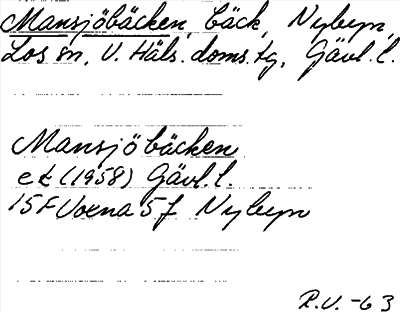 Mansjöbäcken, bäck, Nybyn,
Los sn, V. Häls. doms.tg, Gävl. l.
Mansjöbäcken
ek (1958) Gävl. l.
15F Voxna 5f Nybyn
R.V. -63